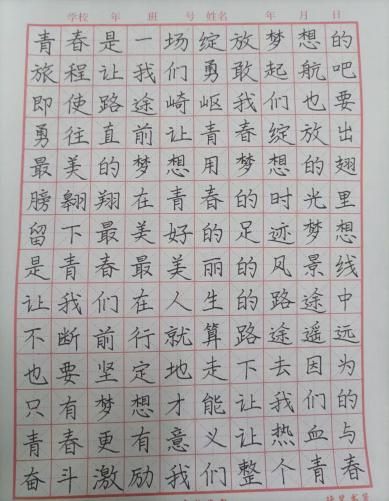 学校 年 班 号 姓名 年 月 日
青春是一场绽放梦想的
旅程让我们勇敢起航吧
即使路途崎岖我们也要
勇往直前让青春绽放出
最美的梦想用梦想的翅
膀翱翔在青春的时光里
留下最美好的足迹梦想
是青春最美丽的风景线
让我们在人生的路途中
不断前行就算路途遥远
也要坚定地走下去因为
只有梦想才能让我们的
青春更有意义让热血与
奋斗激励我们整个青春